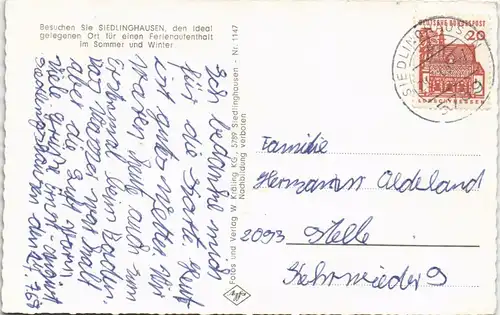 Besuchen Sie SIEDLINGHAUSEN, den ideal
gelegenen Ort für einen Ferienaufenthalt
im Sommer und Winter
Ich bedanke mich
für die Karte. Heut
ist gutes Wetter. Wir
waren heute auch zum
Erstenmal beim Baden.
Das Wasser war kalt
aber die Luft warm.
Viele Grüße
Siedlinghausen den 28. 7. 69
Fotos und Verlag W. Kräling KG, 5789 Siedlinghausen - Nr. 1147
Nachbildung verboten
Agfa
DEUTSCHE BUNDESPOST
20
LORSCH/HESSEN
SIEDLINGHAUSEN
Familie
Hermann Aldeland
2093 Stelle
Kehrwieder 9